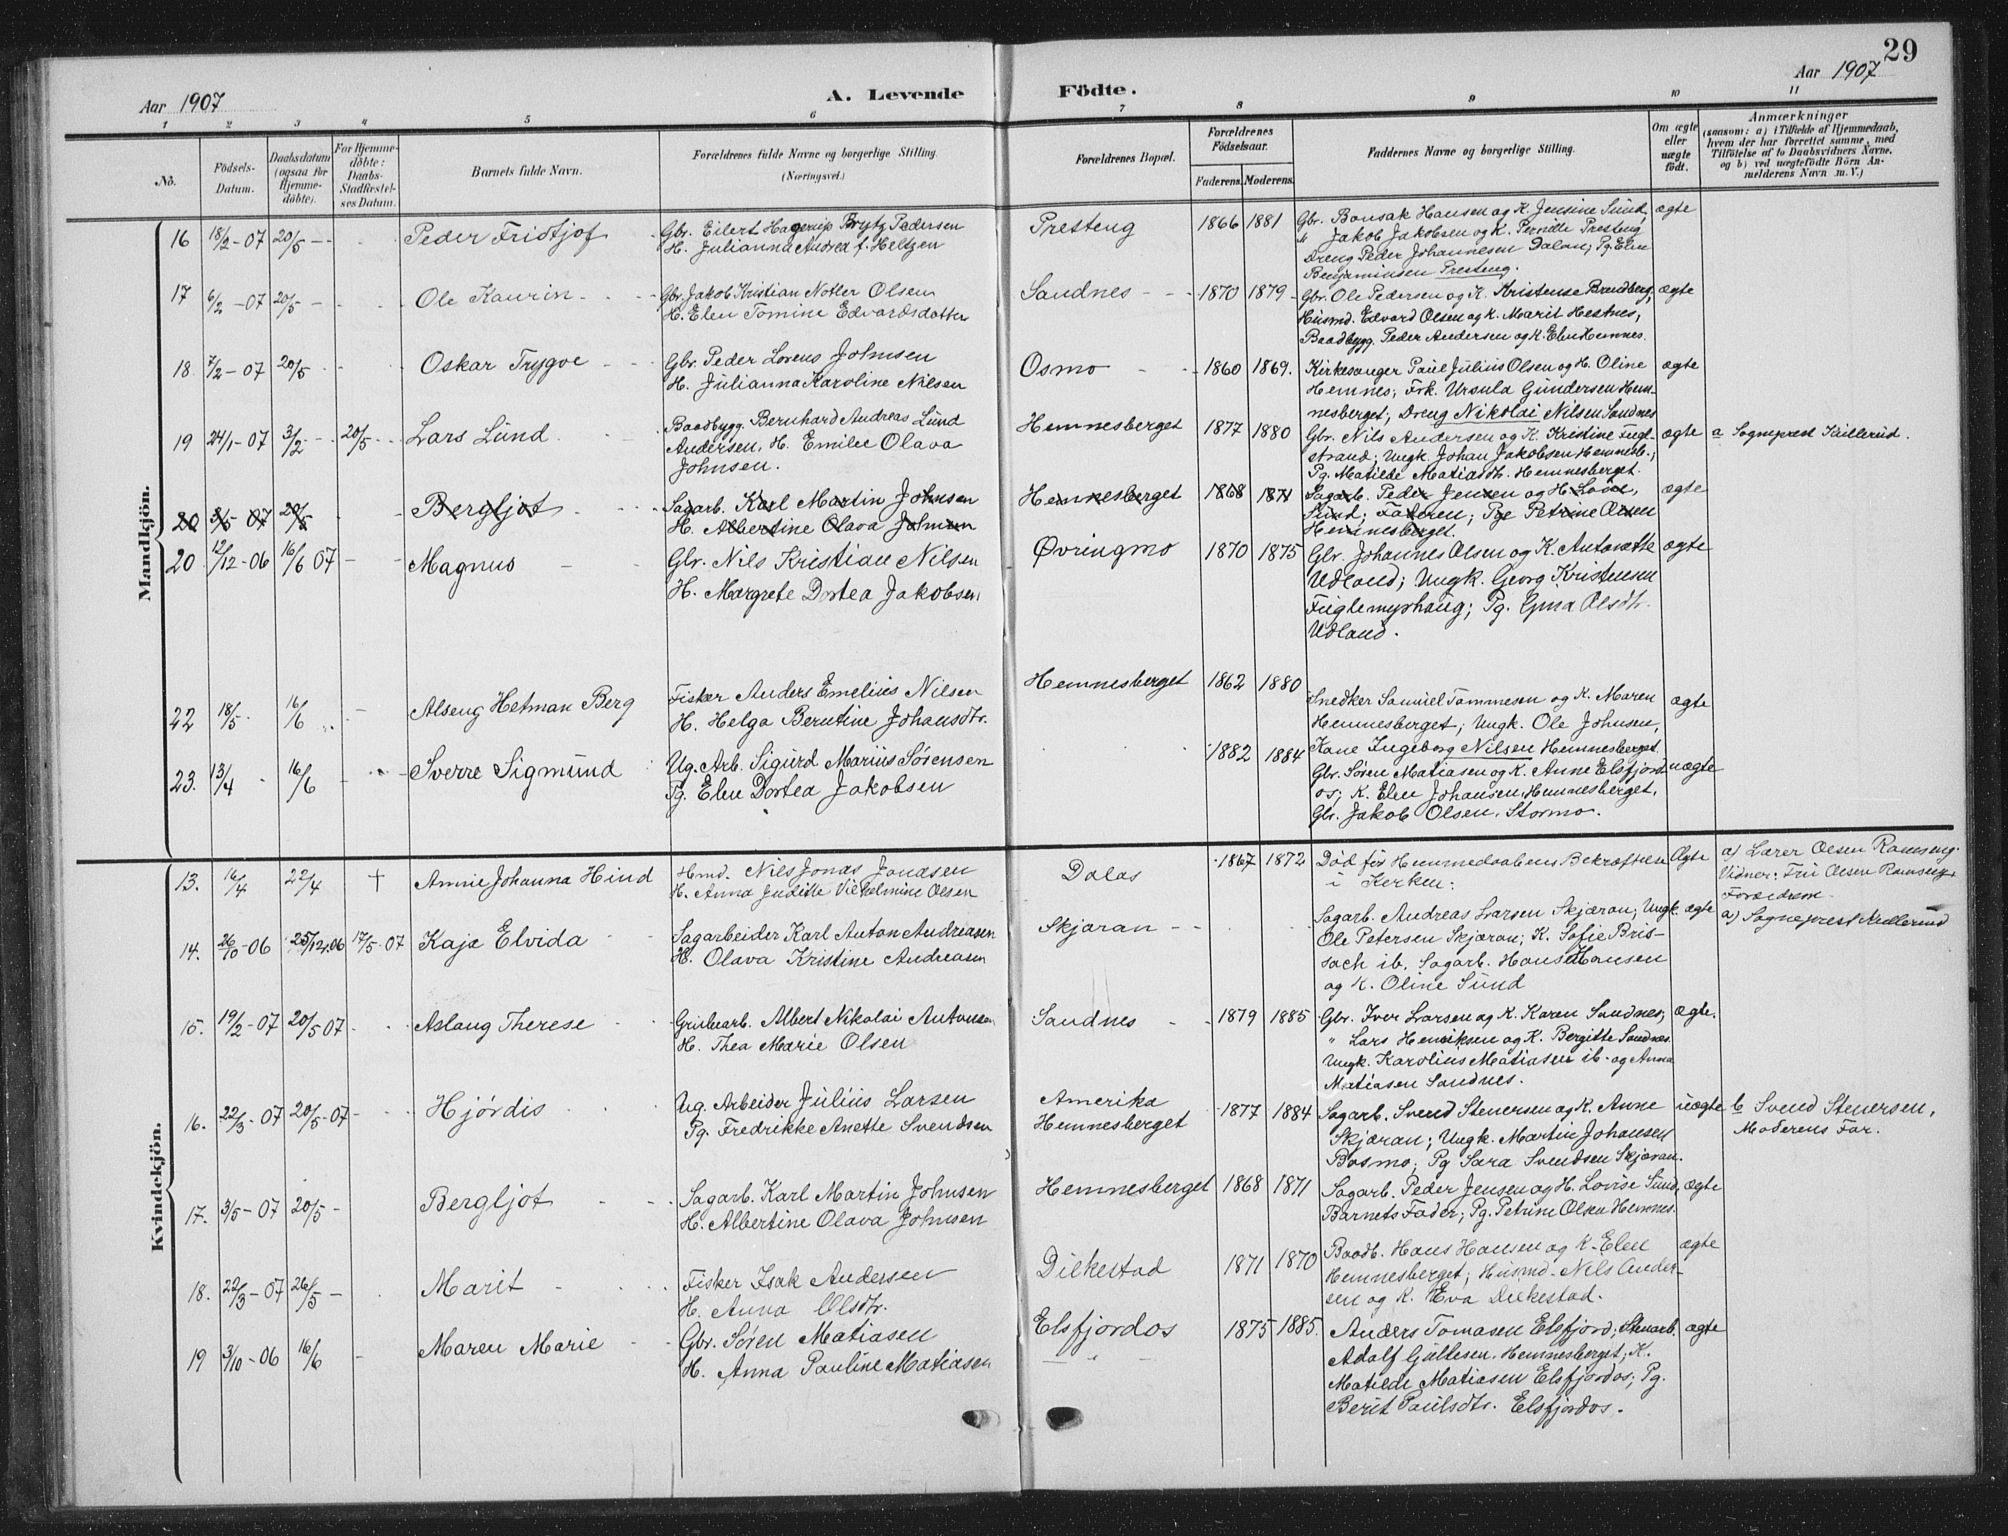 29
Aar 1907
A. Levende Födte.
Aar 1907
1 2 3 4 5 6 7 8 9 10 11
No.
Födsels-Datum.
Daabsdatum (ogsaa for Hjemme-döbte).
For Hjemme-döbte: Daabs-Stadfæstel-ses Datum.
Barnets fulde Navn.
Forældrenes fulde Navne og borgerlige Stilling.
(Næringsvei.)
Forældrenes Bopæl.
Forældrenes Födselsaar.
Faderens. Moderens.
Faddernes Navne og borgerlige Stilling.
Om ægte eller uægte födt.
Anmærkninger
(saasom: a) i Tilfælde af Hjemmedaab,
hvem der har forrettet samme, med
Tilföielse af to Daabsvidners Navne,
og b) ved uægtefödte Börn An-
melderens Navn m. V.)
Mandkjön.
16 18/2-07 20/5 - Peder Fridtjof Gbr. Eilert Hagerup Brytz Pedersen Presteng 1866 1881 Gbr. Bonsak Hansen og K. Jensine Sund, ægte
H. Julianna Andrea f. Heltzen " Jakob Jakobsen og K. Pernille Presteng
Dreng Peder Johannesen Dalan; Pg. Elen
Benjaminsen Presteng.
17 6/2-07 20/5 - Ole Kaurin Gbr. Jakob Kristian Notler Olsen Sandnes 1870 1879 Gbr. Ole Pedersen og K. Kristense Brendberg, ægte
H. Elen Tomine Edvardsdatter Husmd. Edvard Olsen og K. Marit Hestnes,
Baadbygg. Peder Andersen og K. Elen Hemnes.
18. 7/2-07 20/5 - Oskar Trygve Gbr. Peder Lorens Johnsen Osmo 1860 1869. Kirkesanger Paul Julius Olsen og H. Oline ægte
H. Julianna Karoline Nilsen Hemnes; Frk. Ursula Gundersen Hem-
nesberget; Dreng Nikolai Nilsen Sandnes
19 24/1-07 3/2 - 20/5 Lars Lund Baadbygg. Bernhard Andreas Lund Hemnesberget 1877 1880 Gbr. Nils Andersen og K. Kristine Fugl- ægte a Sogneprest
Andersen, H. Emilie Olava strand; Ungk. Johan Jakobsen Hemnesb.;
Johnsen. Pg. Matilde Matiasdtr. Hemnesberget.
20 3/5-07 20/5 Bergljot Sagarb. Karl Martin Johnsen Hemnesberget 1868 1871 Sagarb. Peder Jensen og H. Lovise, ægte
H. Albertine Olava Johnsen Sund; Faderen; Pge Petrine Olsen
Hemnesberget.
20 12/12-06 16/6 07 Magnus Gbr. Nils Kristian Nilsen Øvringmo 1870 1875 Gbr. Johannes Olsen og K. Antonette ægte
H. Margrete Dortea Jakobsen Udland; Ungk. Georg Kristensen
Fuglemyrhaug; Pg. Olsdtr.
Udland.
22 18/5 16/6 Alseng Hetman Berg Fisker Anders Emelius Nilsen Hemnesberget 1862 1880 Snedker Samuel Tommesen og K. Maren ægte
H. Helga Berntine Johansdtr. Hemnesberget; Ungk. Ole Johnsen,
Kone Ingeborg Nilsen Hemnesberget.
23. 13/4 16/6 Sverre Sigmund Ug. Arb. Sigurd Marius Sørensen 1882 1884 Gbr. Søren Matiasen og K. Anne Elsfjord- uægte
Pg. Elen Dortea Jakobsen os; K. Elen Johansen, Hemnesberget,
Gbr. Jakob Olsen, Stormo.
Kvindekjön.
13. 16/4 22/4 † Annie Johanna Hind Hmd. Nils Jonas Jonassen Dalas 1867 1872 Død før Hjemmedaabens Bekræftelse Ægte a) Lærer Olsen Ramseng.
H. Anna Judithe Vilhelmine Olsen i Kirken: Vidner: Fru Olsen Ramseng,
Forældrene
14. 26/10-06 25/12.06 17/5-07 Kaja Elvida Sagarbeider Karl Anton Andreasen Skjæran Sagarb. Andreas Larsen Skjæran; Ungk. ægte a) Sogneprest
H. Olava Kristine Andreasen Ole Petersen Skjæran; K. Sofie Bris-
sach ib. Sagarb. Hans Hansen
og K. Oline Sund
15. 19/2-07 20/5 07 Aslaug Therese Grubearb. Albert Nikolai Antonsen Sandnes 1879 1885 Gbr. Iver Larsen og K. Karen Sandnes; ægte.
H. Thea Marie Olsen " Lars Henriksen og K. Bergitte Sandnes.
Ungk. Karolius Matiasen ib. og Anna
Matiasen Sandnes.
16. 22/3-07 20/5-07 Hjørdis Ug. Arbeider Julius Larsen Amerika 1877 1884 Sagarb. Svend Stenersen og K. Anne uægte b Svend Stenersen,
Pg. Fredrikke Anette Svendsen Hemnesberget Skjæran; Ungk. Martin Johansen Moderens Far.
Bosmo; Pg Sara Svendsen Skjæran.
17. 3/5-07 20/5 - Bergljot Sagarb. Karl Martin Johnsen Hemnesberget 1868 1871 Sagarb. Peder Jensen og H. Lovise Sund, ægte
H. Albertine Olava Johnsen Barnets Fader; Pg. Petrine Olsen Hemnes.
18. 22/3-07 26/5 - Marit Fisker Isak Andersen Dilkestad 1871 1870 Baadb. Hans Hansen og K. Elen ægte
H. Anna Olsdtr. Hemnesberget; Husmd. Nils Ander-
sen og K. Eva Dilkestad.
19 3/10-06 16/6 - Maren Marie Gbr. Søren Matiasen Elsfjordos 1875 1885. Anders Tomasen Elsfjord; Stenarb. ægte
H. Anna Pauline Matiasen Adolf Gullesen, Hemnesberget; K.
Matilde Matiasen Elsfjordos; Pg.
Berit Paulsdtr. Elsfjordos.